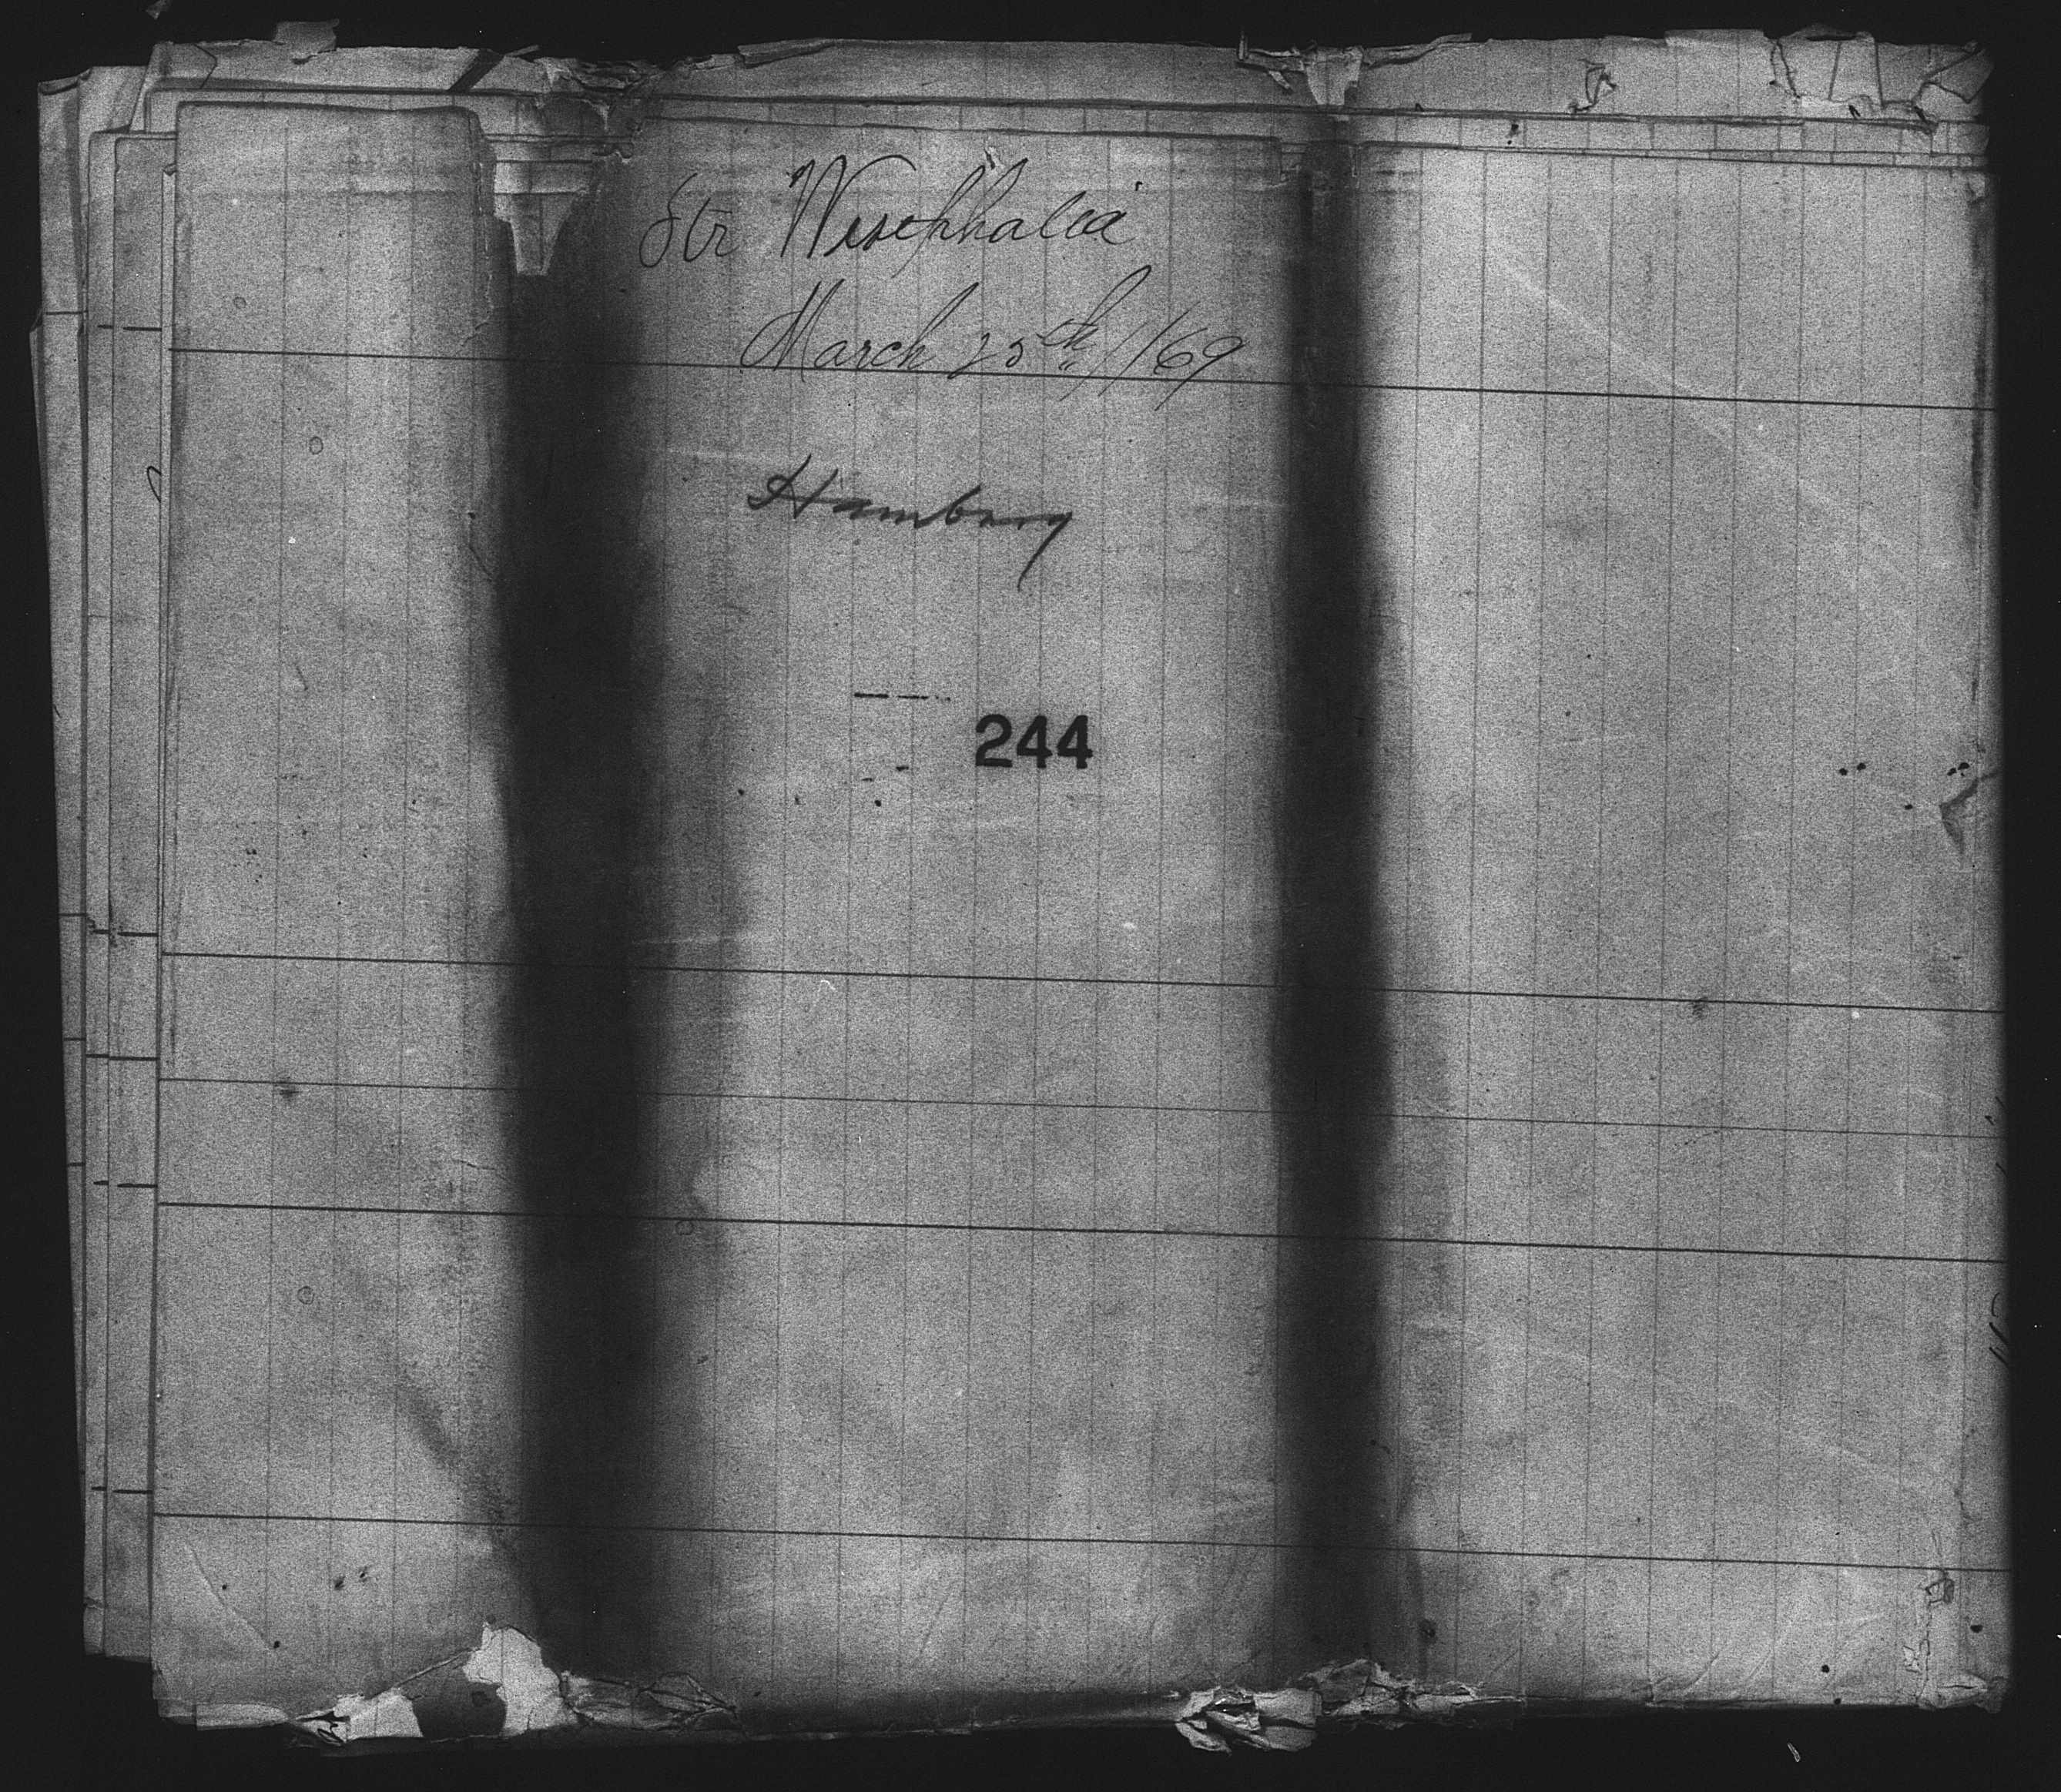 Str Westphalia
March 25th/69
Hamburg
244